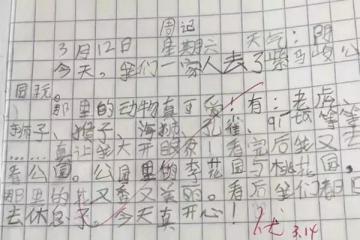 周记
3月12日 星期六 天气：阴
今天。我们一家人去了紫马岭公
园玩。那里的动物真可爱！有：老虎、
狮子、猴子、海狮、孔雀、等等
……真让我大开眼界！看完后我又
去公园。公园里的李花园与桃花园。
那里的花又香又美丽。看后我们都回
去休息了。今天真开心！
优 3.14